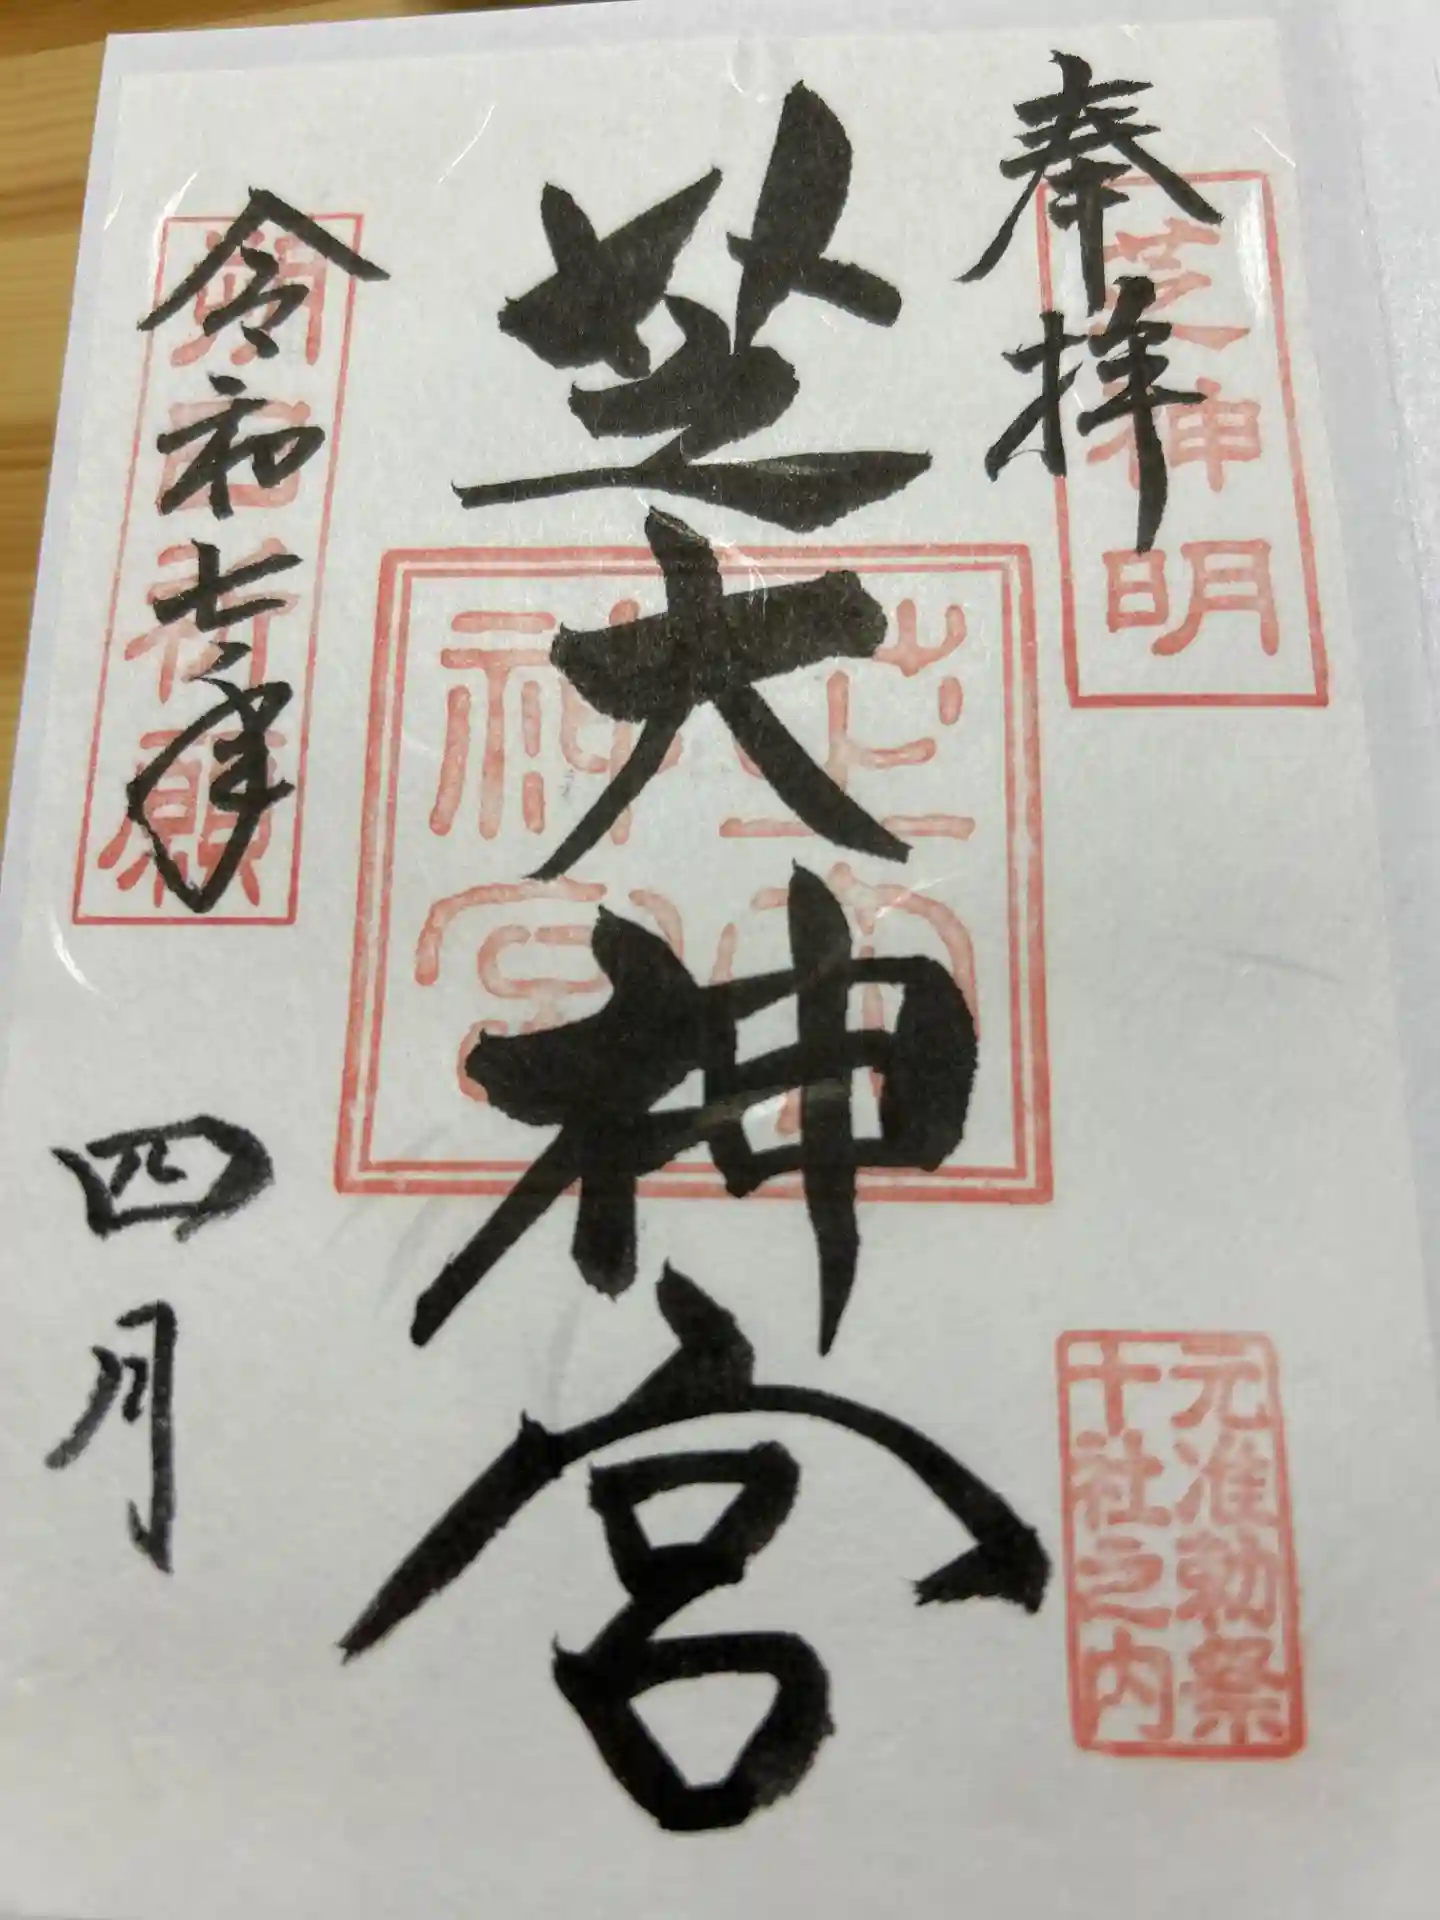 奉拝
芝神明
元准勅祭
十社之内
芝大神宮
芝大
神宮
令和七年
四月